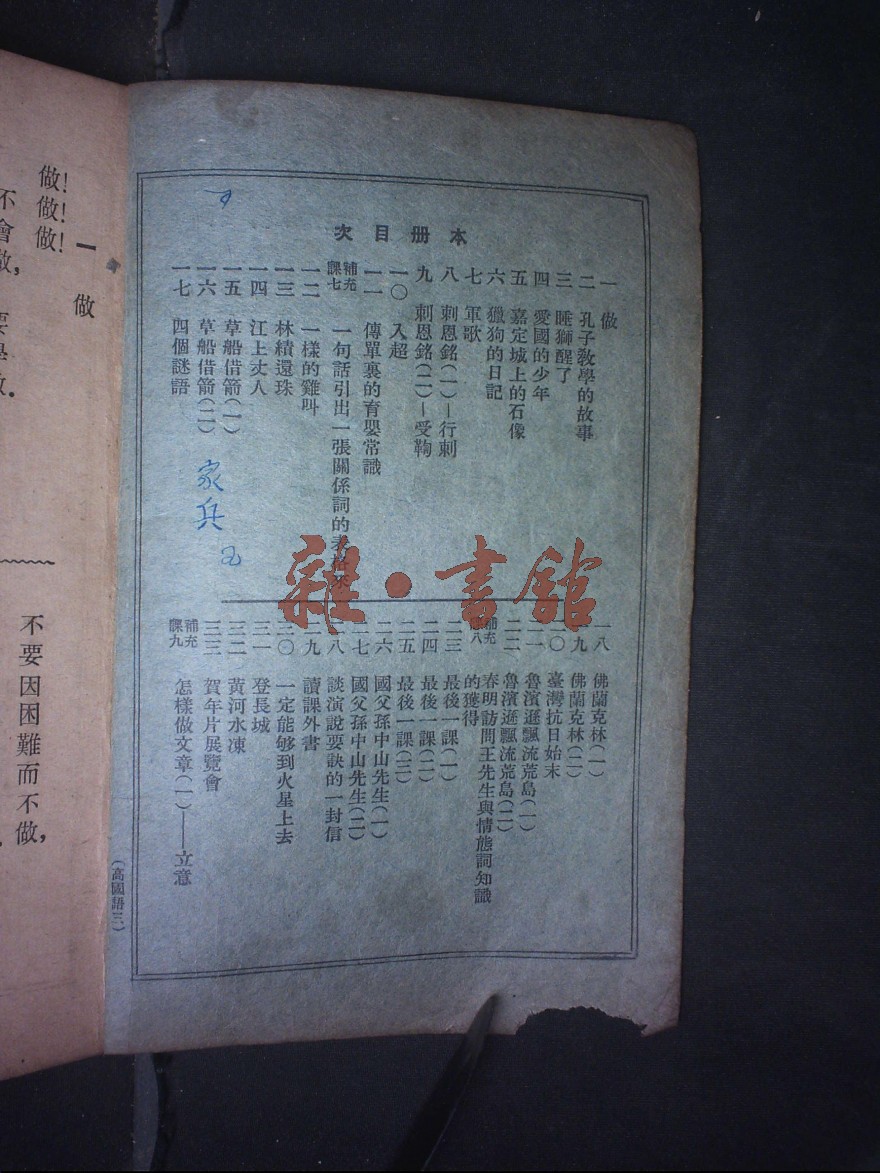 本册目次
一　做
二　孔子教學的故事
三　睡獅醒了
四　愛國的少年
五　嘉定城上的石像
六　獵狗的日記
七　軍歌
八　刺恩銘(一)—行刺
九　刺恩銘(二)—受鞫
一〇　入超
一一　傳單裏的育嬰常識
補充課七　一句話引出一張關係詞的表格來
一二　一樣的雞叫
一三　林績還珠
一四　江上丈人
一五　草船借箭(一)
一六　草船借箭(二)
一七　四個謎語
家兵
一八　佛蘭克林(一)
一九　佛蘭克林(二)
二〇　臺灣抗日始末
二一　魯濱遜飄流荒島(一)
二二　魯濱遜飄流荒島(二)
補充課八　春明訪問王先生與情態詞知識的獲得
二三　最後一課(一)
二四　最後一課(二)
二五　最後一課(三)
二六　國父孫中山先生(一)
二七　國父孫中山先生(二)
二八　談演說要訣的一封信
二九　讀課外書
三〇　一定能够到火星上去
三一　登長城
三二　黃河水凍
三三　賀年片展覽會
補充課九　怎樣做文章(一)——立意
(高國語三)
雜·書館
一　做
做!做!做!
不要因困難而不做,